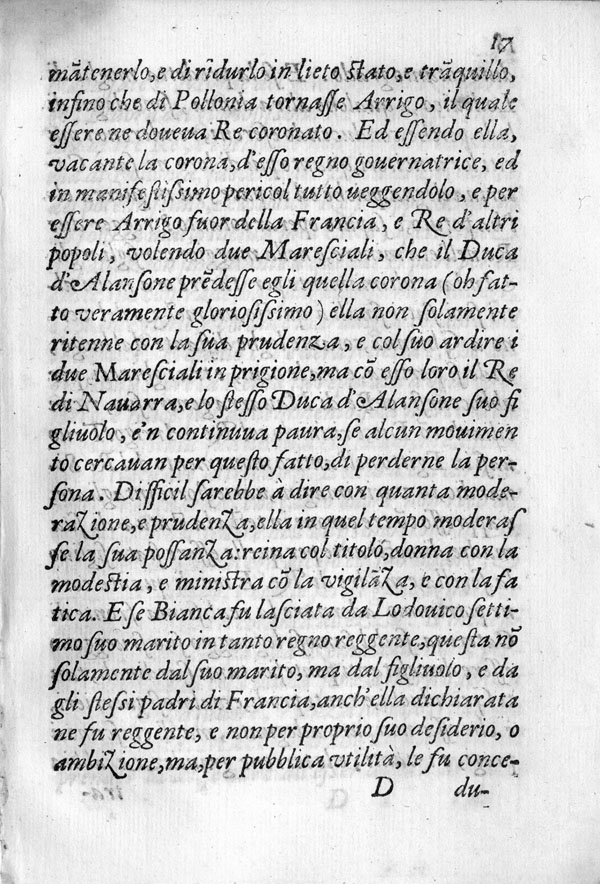 17
mãtenerlo, e di rĩdurlo in lieto stato, e trãquillo,
infino che di Pollonia tornasse Arrigo, il quale
essere ne doueua Re coronato. Ed essendo ella,
vacante la corona, d'esso regno gouernatrice, ed
in manifestissimo pericol tutto ueggendolo, e per
essere Arrigo fuor della Francia, e Re d'altri
popoli, volendo due Maresciali, che il Duca
d'Alansone prẽdesse egli quella corona (oh fat-
to veramente gloriosissimo) ella non solamente
ritenne con la sua prudenza, e col suo ardire i
due Maresciali in prigione, ma cõ esso loro il Re
di Nauarra, e lo stesso Duca d'Alansone suo fi
gliuolo, e'n continuua paura, se alcun mouimen
to cercauan per questo fatto, di perderne la per-
sona. Difficil sarebbe à dire con quanta mode-
razione, e prudenza, ella in quel tempo moderas
se la sua possanza: reina col titolo, donna con la
modestia, e ministra cõ la vigilãza, e con la fa
tica. E se Bianca fu lasciata da Lodouico setti-
mo suo marito in tanto regno reggente, questa nõ
solamente dal suo marito, ma dal figliuolo, e da
gli stessi padri di Francia, anch'ella dichiarata
ne fu reggente, e non per proprio suo desiderio, o
ambizione, ma, per pubblica vtilità, le fu conce-
D du-